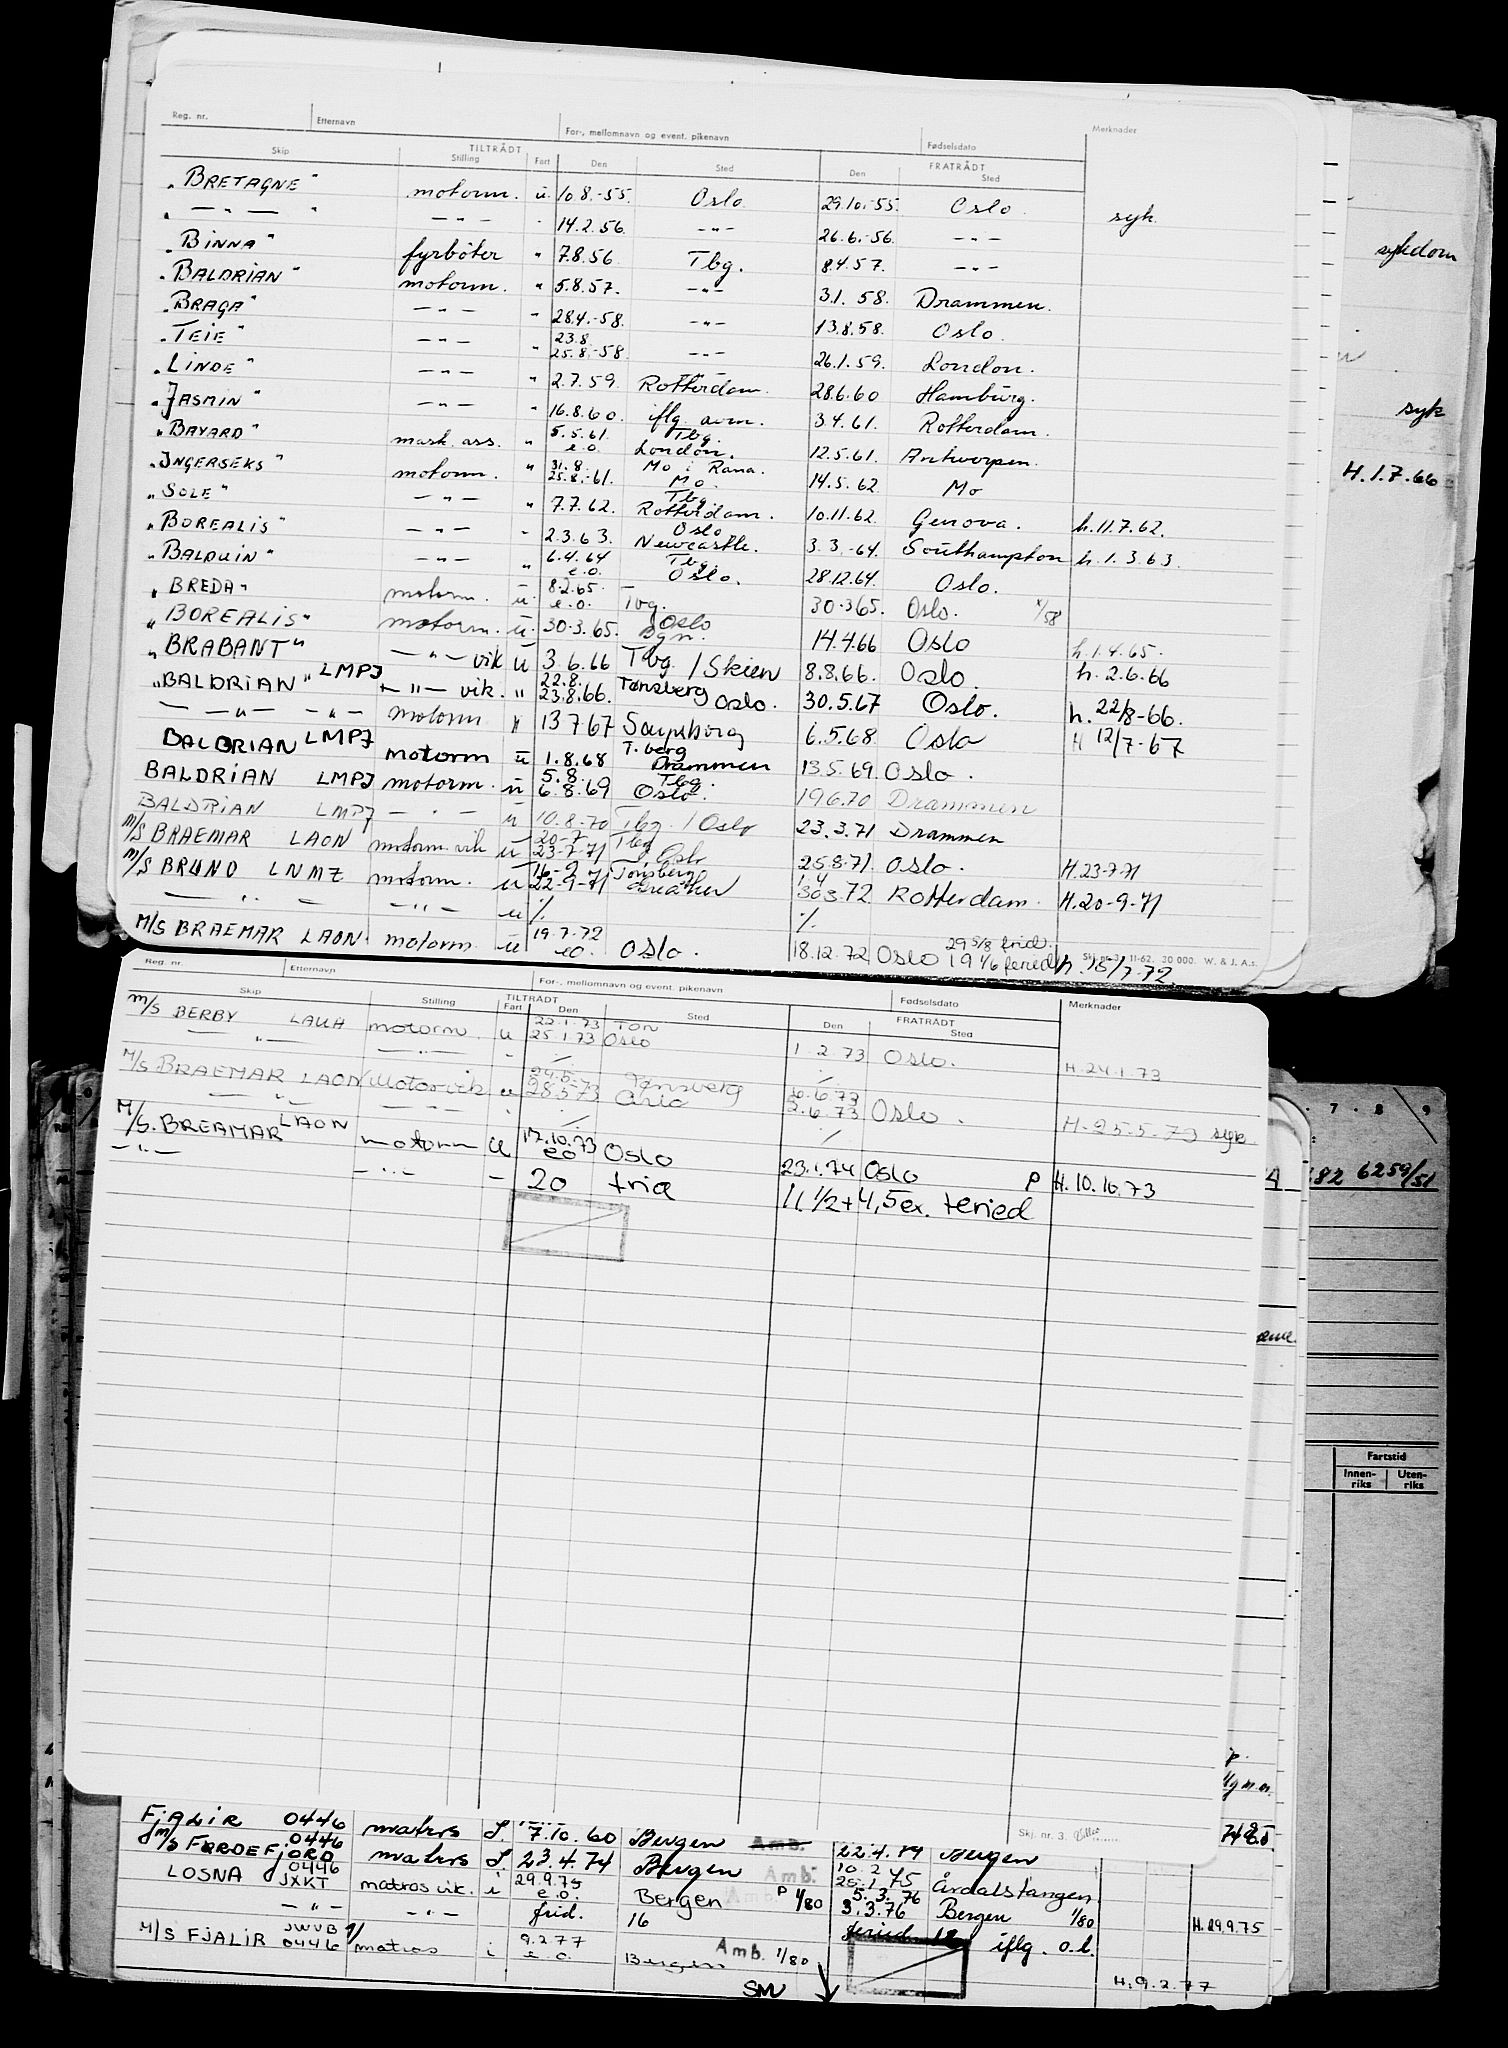 Reg. nr. Etternavn For-, mellomnavn og event. pikenavn Fødselsdato Merknader
Skip TILTRÅDT Stilling Fart Den Sted Den FRATRÅDT Sted
"BRETAGNE" motorm. u. 10.8.-55. Oslo 29.10.-55. Oslo syk
" — " — " — " — " 14.2.56. — " — 26.6.-56. — " —
"BINNA" fyrbøter " 7.8.56 Tbg. 8.4.57. — " — sykdom
"BALDRIAN" motorm. " 5.8.57. — " — 3.1.58. Drammen.
"BRAGA" — " — " 28.4.-58. — " — 13.8.58. Oslo.
"TEIE" — " — " 23.8. 25.8.-58 — " — 26.1.59. London.
"LINDE" — " — " 2.7.59. Rotterdam. 28.6.60 Hamburg.
"JASMIN" — " — " 16.8.60. iflg. avm. 3.4.61. Rotterdam. syk
"BAYARD" mask. ass. " 5.5.61. e.o. Tbg. London. 12.5.61. Antwerpen.
"INGERSEKS" motorm. " 31.8. 25.8.-61. Mo i Rana. Mo. 14.5.62. Mo H.1.7.66
"SOLE" — " — " 7.7.62. Tbg. Rotterdam. 10.11.62. Genova. h.11.7.62.
"BOREALIS" — " — " 2.3.63. Oslo Newcastle. 3.3.-64. Southampton h.1.3.63.
"BALDUIN" — " — " 6.4.64 e.o. Tbg. Oslo. 28.12.64. Oslo.
"BREDA" motorm. u. 8.2.65. e.o. — Tbg. 30.3.65. Oslo. x/58
"BOREALIS" motorm. u. 30.3.65. Oslo 14.4.66 Oslo h.1.4.65.
"BRABANT" — " — vik u 3.6.66 Tbg. / Skien 8.8.66. Oslo. h.2.6.66
"BALDRIAN" LMPJ — " — vik. " 22.8. 23.8.66. Tønsberg Oslo. 30.5.67 Oslo. h. 22/8-66.
— " — — " — motorm " 13.7.67 Sarpsborg 6.5.68. Oslo H 12/7-67
BALDRIAN LMPJ motorm u 1.8.68 T.berg Drammen 13.5.69. Oslo.
BALDRIAN LMPJ motorm. u 5.8. 6.8.69 Tbg. Oslo. 19.6.70 Drammen
BALDRIAN LMPJ — " — u 10.8.70 Tbg. / Oslo 23.3.71 Drammen
M/S BRAEMAR LAON motorm. vik u 20-7- 23-7-71 Tbg Oslo 25.8.71. Oslo. H.23-7-71
M/S BRUNO LNMZ motorm. u 16-9- 22-9-71 Tønsberg 1.4 30.3.72 Rotterdam. H.20-9-71
— " — — " — u % %
M/S BRAEMAR LAON. motorm. u 19.7.72 e.o. Oslo. 18.12.72 Oslo 29 5/8 frid. 19 1/6 feried h. 15/7-72.
Skj. nr. 3. 11-62. 30 000. W. & J. A.s.
Reg. nr. Etternavn For-, mellomnavn og event. pikenavn Fødselsdato Merknader
Skip Stilling TILTRÅDT Fart Den Sted Den FRATRÅDT Sted
M/S BERBY LAUA motorm. u 22.1.73 25.1.73 Tøn Oslo 1.2.73 Oslo. H.24.1.73
— " — — " — " ⁄
M/S BRAEMAR LAON Motorvik u 24.5. 28.5.73 Tønsberg 6.6.73 5.6.73 Oslo. H.25.5.73 syk
— " — — " — " ⁄ ⁄
M/S. BREAMAR LAON motorm u 17.10.73 eo Oslo 23.1.74 Oslo P H.10.10.73
— " — — " — — 20 frid 11 1/2 + 4,5 ex. feried
7 8 9
.82 6259/51
Fartstid
Innenriks Utenriks
Skj. nr. 3.
FJALIR 0446 matros I. 7.10.60 Bergen Amb. 22.4.74 Bergen
M/S FØRDEFJORD 0446 matros I. 23.4.74 Bergen Amb. 10.2 25.1.75 Årdalstangen
LOSNA 0446 JXKT matros vik. i 29.9.75 e.o. Bergen Amb P 1/80 5.3.76 3.3.76 Bergen 1/80 H.29.9.75
— " — — " — frid. 16 feried. 12 iflg. o.l.
M/S FJALIR JWVB 0446 matros i 9.2.77 e.o. Bergen Amb. 1/80 H.9.2.77
SMV